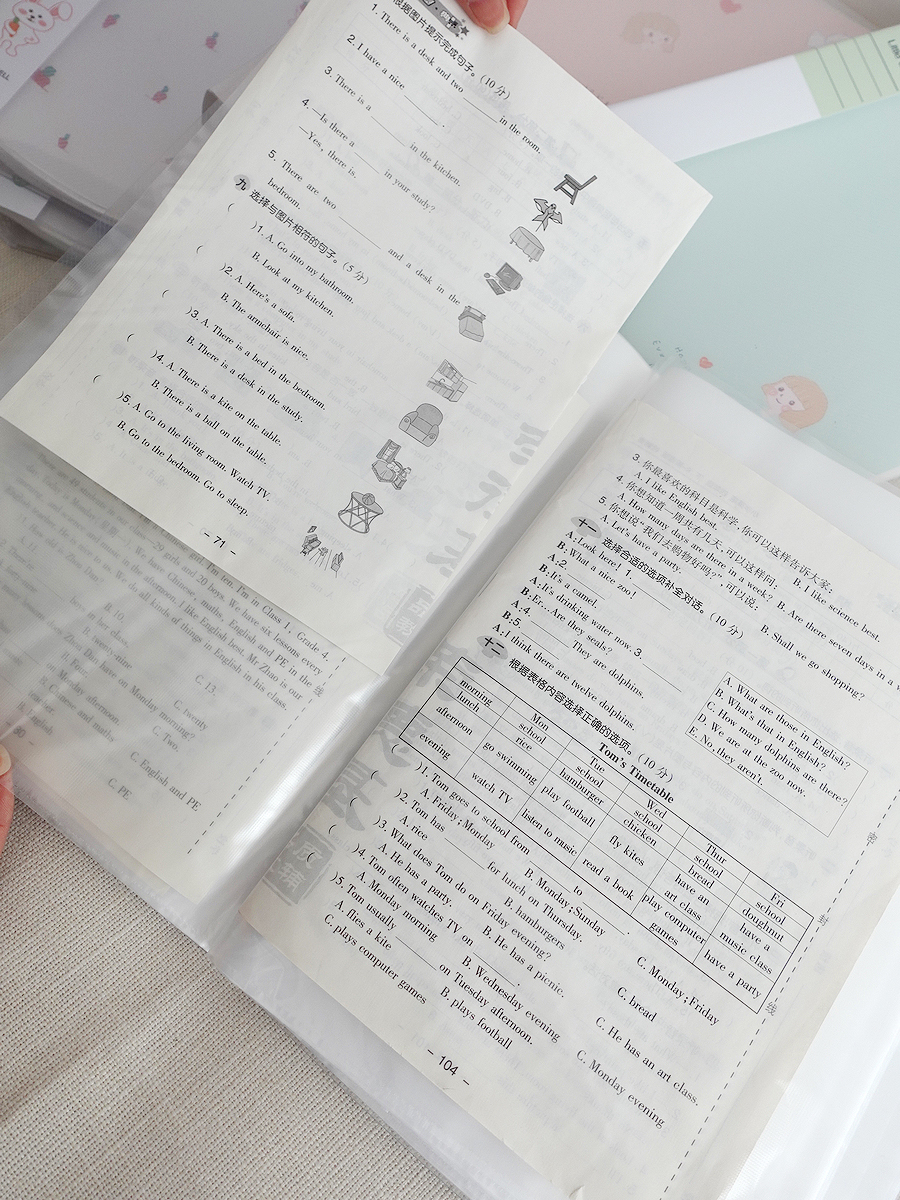 根据图片提示完成句子。(10分)
1. There is a desk and two ______ in the room.
2. I have a nice ______.
3. There is a ______ in the kitchen.
4. —Is there a ______ in your study?
—Yes, there is.
5. There are two ______ and a desk in the
bedroom.
九 选择与图片相符的句子。(5分)
( )1. A. Go into my bathroom.
B. Look at my kitchen.
( )2. A. Here's a sofa.
B. The armchair is nice.
( )3. A. There is a bed in the bedroom.
B. There is a desk in the study.
( )4. A. There is a kite on the table.
B. There is a ball on the table.
( )5. A. Go to the living room. Watch TV.
B. Go to the bedroom. Go to sleep.
- 71 -
I'm ten. I'm in Class 1, Grade 4.
29 girls and 20 boys. We have six lessons every
We have Chinese, maths, English and PE in the
in the afternoon. I like English best. Mr Zhao is our
We do all kinds of things in English in his class.
B. 10.
C. 13.
B. twenty-nine
C. twenty
have on Monday morning?
C. Two.
Monday afternoon.
C. English and PE
C. PE
线
3. 你最喜欢的科目是科学,你可以这样告诉大家:
A. I like English best.
B. I like science best.
4. 你想知道一周共有几天,可以这样问:
A. How many days are there in a week?
B. Are there seven days in a
5. 你想说“我们去购物好吗?”,可以说:
A. Let's have a party.
B. Shall we go shopping?
十一 选择合适的选项补全对话。(10分)
A: Look here! 1. ______
B: What a nice zoo!
A: 2. ______
B: It's a camel.
A: It's drinking water now. 3. ______
B: Er... Are they seals?
A: 4. ______ They are dolphins.
B: 5. ______
A: I think there are twelve dolphins.
A. What are those in English?
B. What's that in English?
C. How many dolphins are there?
D. We are at the zoo now.
E. No, they aren't.
十二 根据表格内容选择正确的选项。(10分)
Tom's Timetable
Mon Tue Wed Thur Fri
morning school school school school school
lunch rice hamburger chicken bread doughnut
afternoon go swimming play football fly kites have an art class have a music class
evening watch TV listen to music read a book play computer games have a party
( )1. Tom goes to school from ______ to ______.
A. Friday; Monday B. Monday; Sunday C. Monday; Friday
( )2. Tom has ______ for lunch on Thursday.
A. rice B. hamburgers C. bread
( )3. What does Tom do on Friday evening?
A. He has a party. B. He has a picnic. C. He has an art class.
( )4. Tom often watches TV on ______.
A. Monday morning B. Wednesday evening C. Monday evening
( )5. Tom usually ______ on Tuesday afternoon.
A. flies a kite B. plays football
C. plays computer games
- 104 -
密
封
线